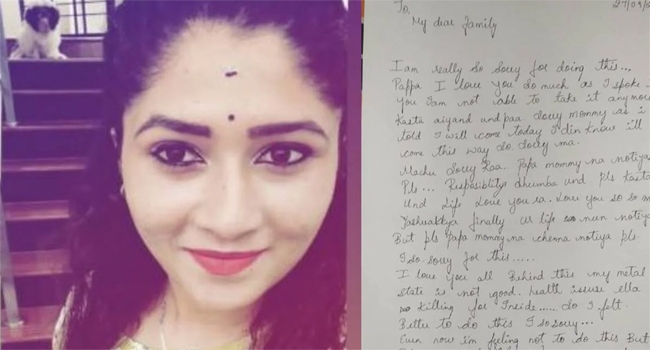 To,
27/09/2
My dear family
I am really so sorry for doing this...
Pappa I love you so much as I spoke
You I am not able to take it anymore
Kasta aiyand undpaa. Sorry mommy as i
told I will come today I din know i'll
come this way do. Sorry ma.
Madhu Sorry Raa. Papa mommy na notiya
Pls... Resposiblity dhumba und pls Kasta
Und life Love you ra. Love you so so
finally us life neen notiya
But pls Papa mommy na chenna notiya pls
I so sorry for this......
I love you all Behind this my metal
state is not good. health issuse ella
Killing for Inside..... So I felt
Better to do this I so sorry...
Even now im feeling not to do this But